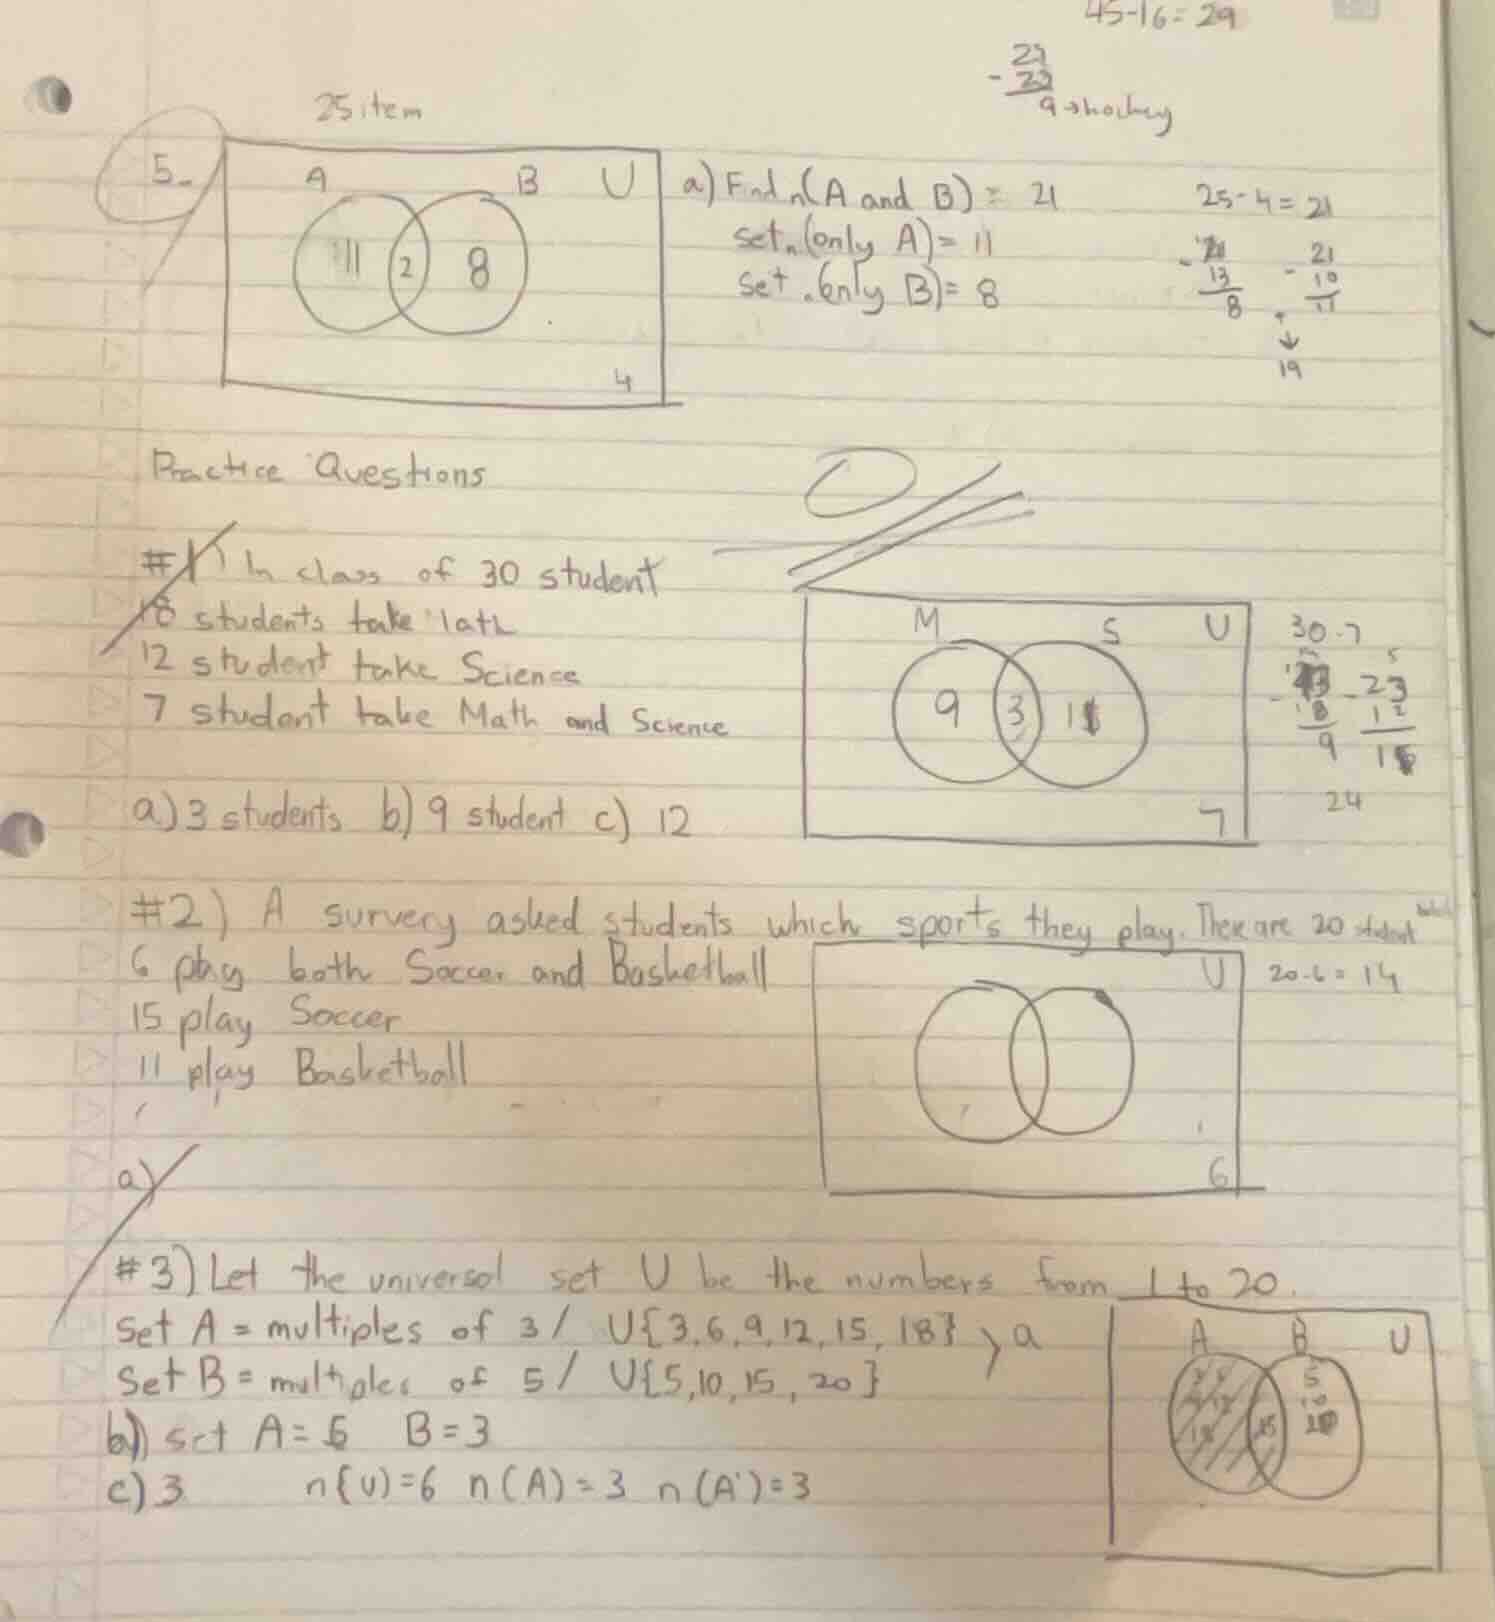 45-16=29
- 23
9→hockey
25 item
5.
A B U
11 2 8
4
a) Find n(A and B) = 21
set n(only A) = 11
set (only B) = 8
25-4=21
- 13
8
21
- 10
11
↓
19
Practice Questions
#1) In class of 30 student
18 students take
12 student take Science
7 student take Math and Science
a) 3 students b) 9 student c) 12
M S U
9 3
7
30-7
18
9
- 23
12
24
#2) A survery asked students which sports they play. There are 20 student
6 play both Soccer and Basketball
15 play Soccer
11 play Basketball
U
6
20-6=14
a)
#3) Let the universal set U be the numbers from 1 to 20.
Set A = multiples of 3 / U{3,6,9,12,15,18} > a
Set B = multiples of 5 / U{5,10,15,20}
b) set A = 6 B = 3
c) 3 n{U)=6 n(A)=3 n(A')=3
A B U
5
15 10
20